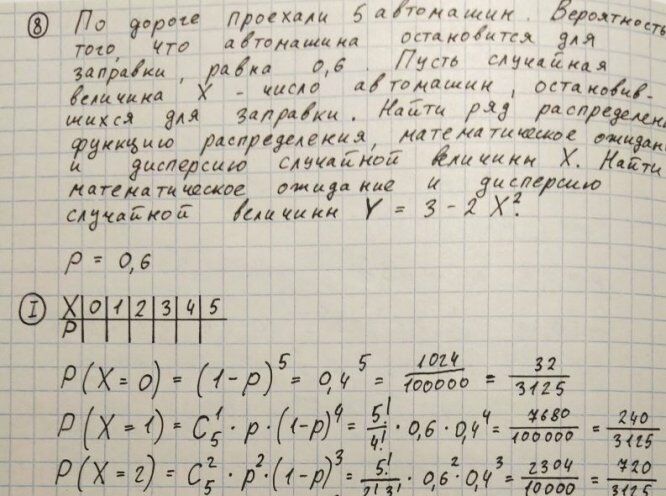 ⑧ По дороге проехали 5 автомашин. Вероятность
того, что автомашина остановится для
заправки, равна 0,6. Пусть случайная
величина X - число автомашин, остановив-
шихся для заправки. Найти ряд распределени
функцию распределения, математическое ожидан
и дисперсию случайной величины X. Найти
математическое ожидание и дисперсию
случайной величины Y = 3 - 2X².
p = 0,6
Ⅰ X 0 1 2 3 4 5
P
P(X=0) = (1-p)⁵ = 0,4⁵ = 1024/100000 = 32/3125
P(X=1) = C₅¹ · p · (1-p)⁴ = 5!/4! · 0,6 · 0,4⁴ = 7680/100000 = 240/3125
P(X=2) = C₅² · p² · (1-p)³ = 5!/2!3! · 0,6² · 0,4³ = 2304/10000 = 720/3125